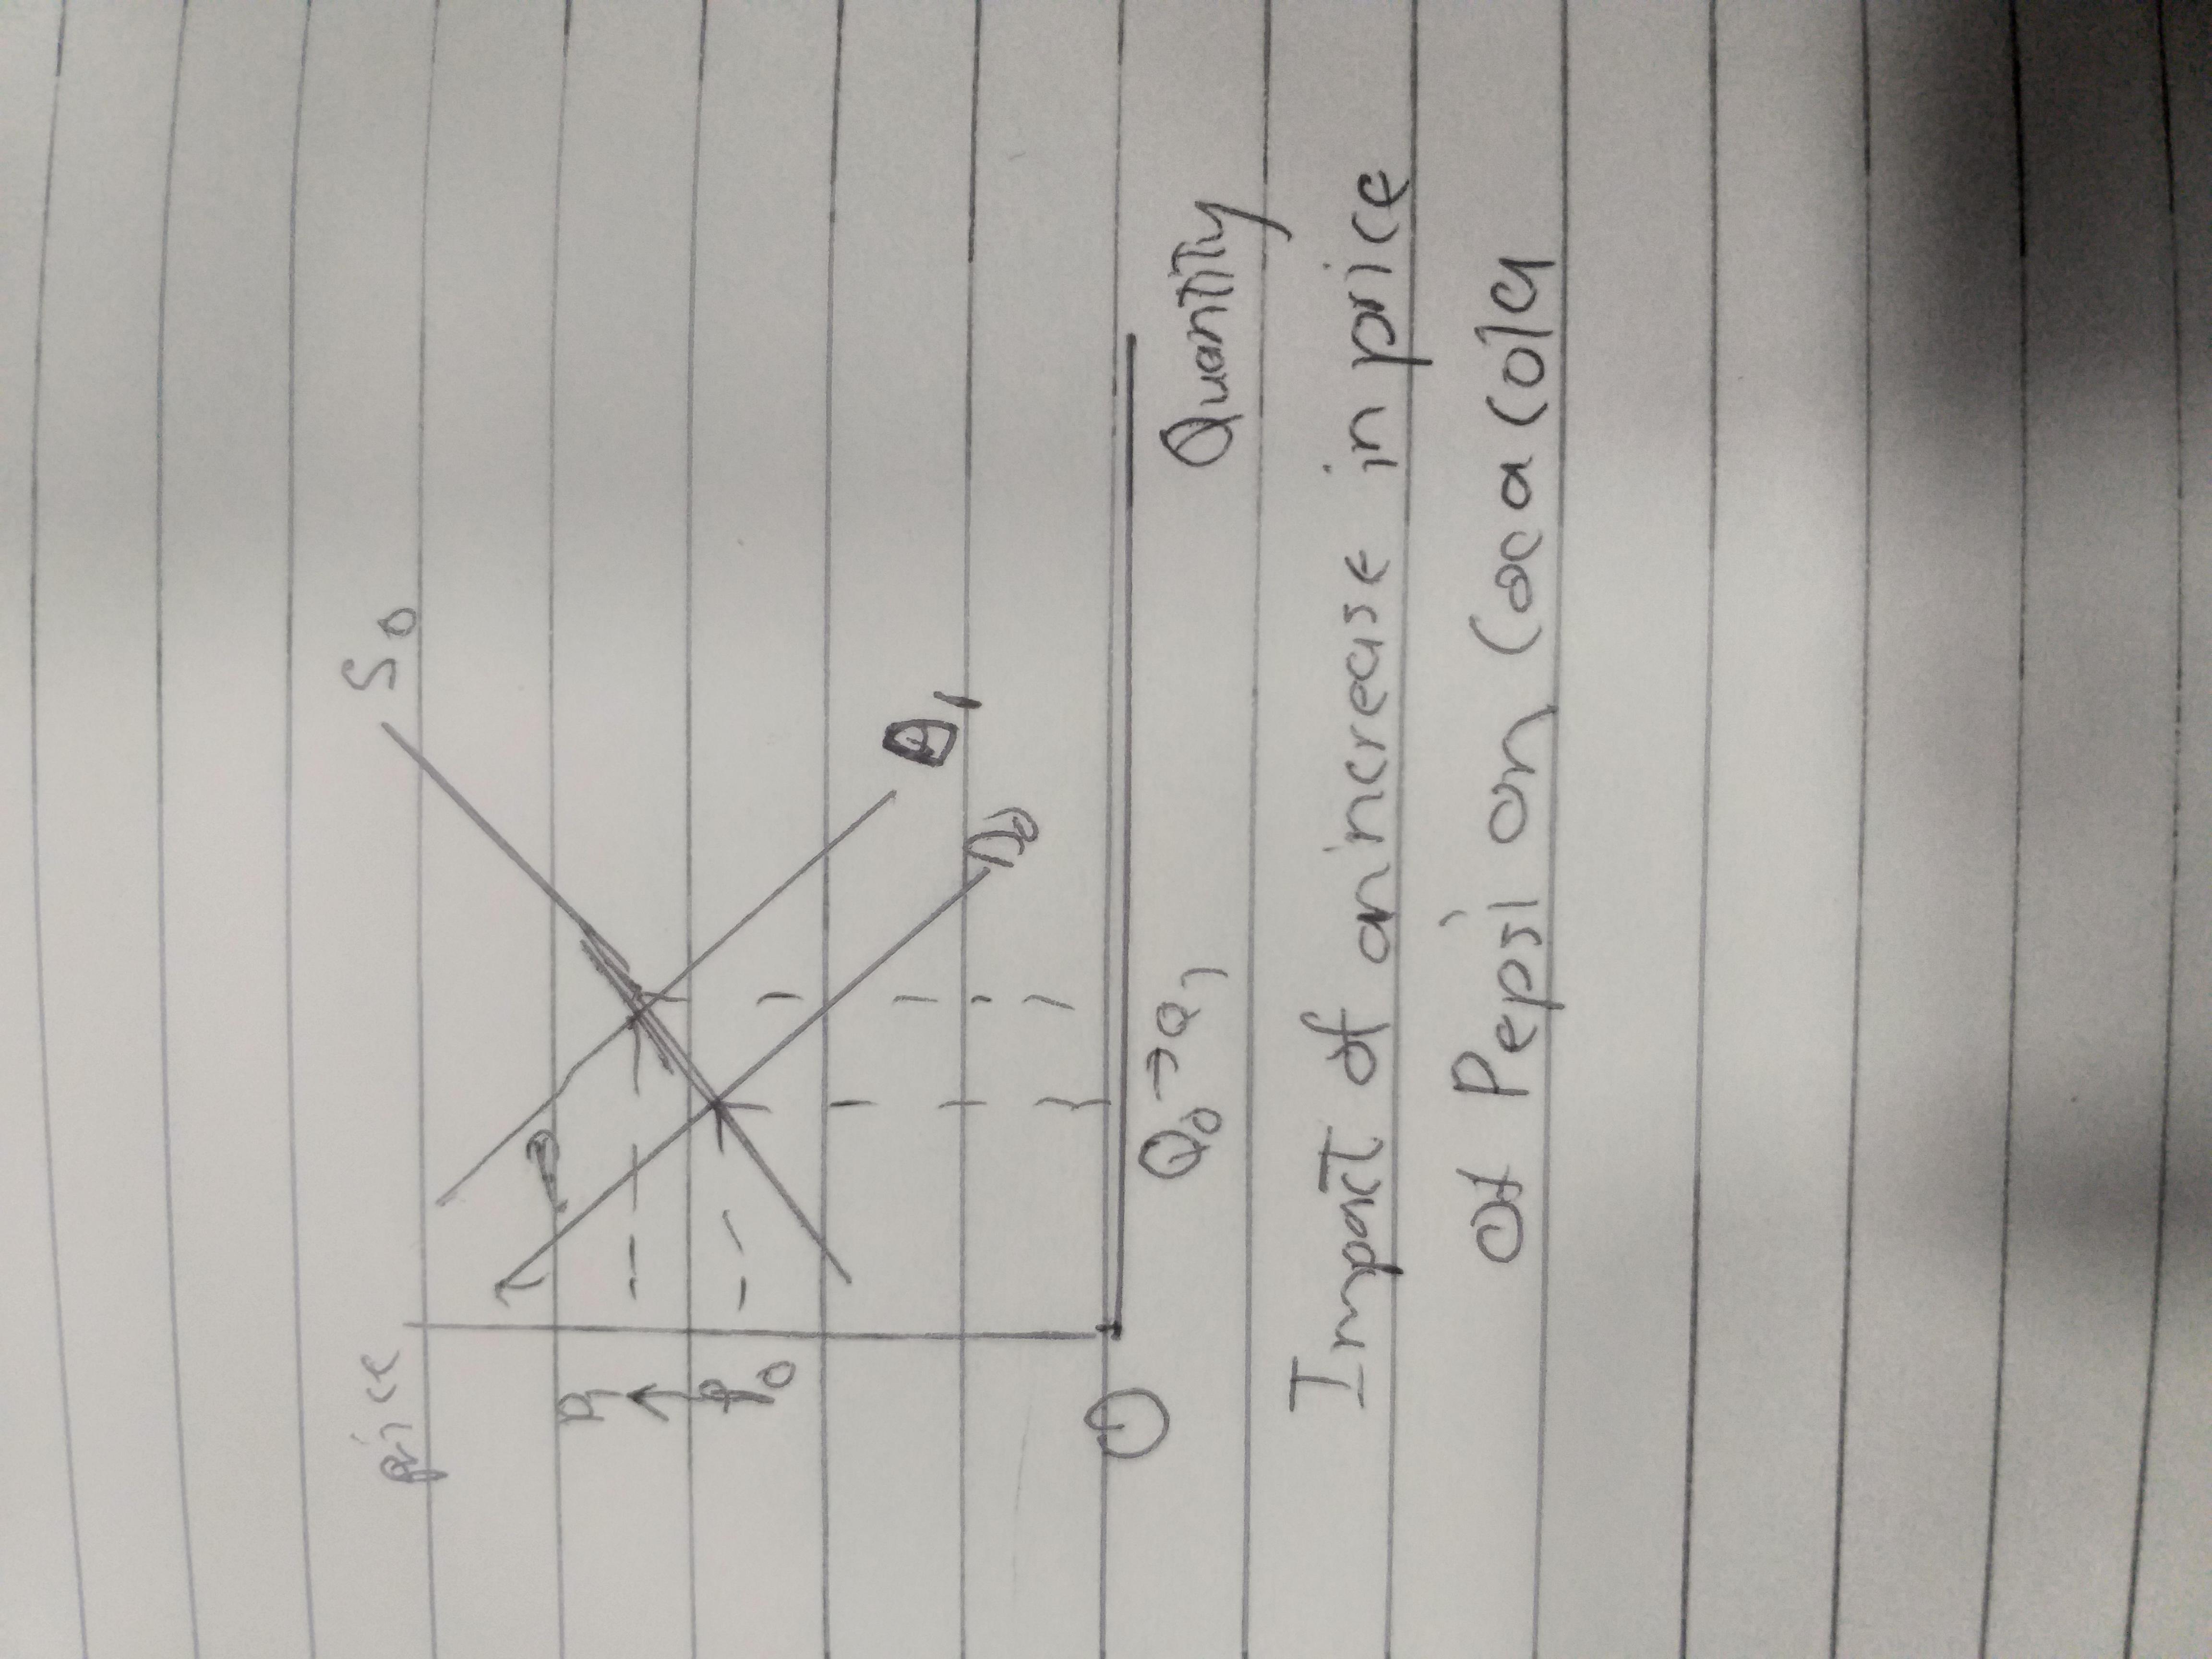 price
S0
P1
P0
D1
D0
O
Q0→Q1
Quantity
Impact of an increase in price
of Pepsi on Coca Cola